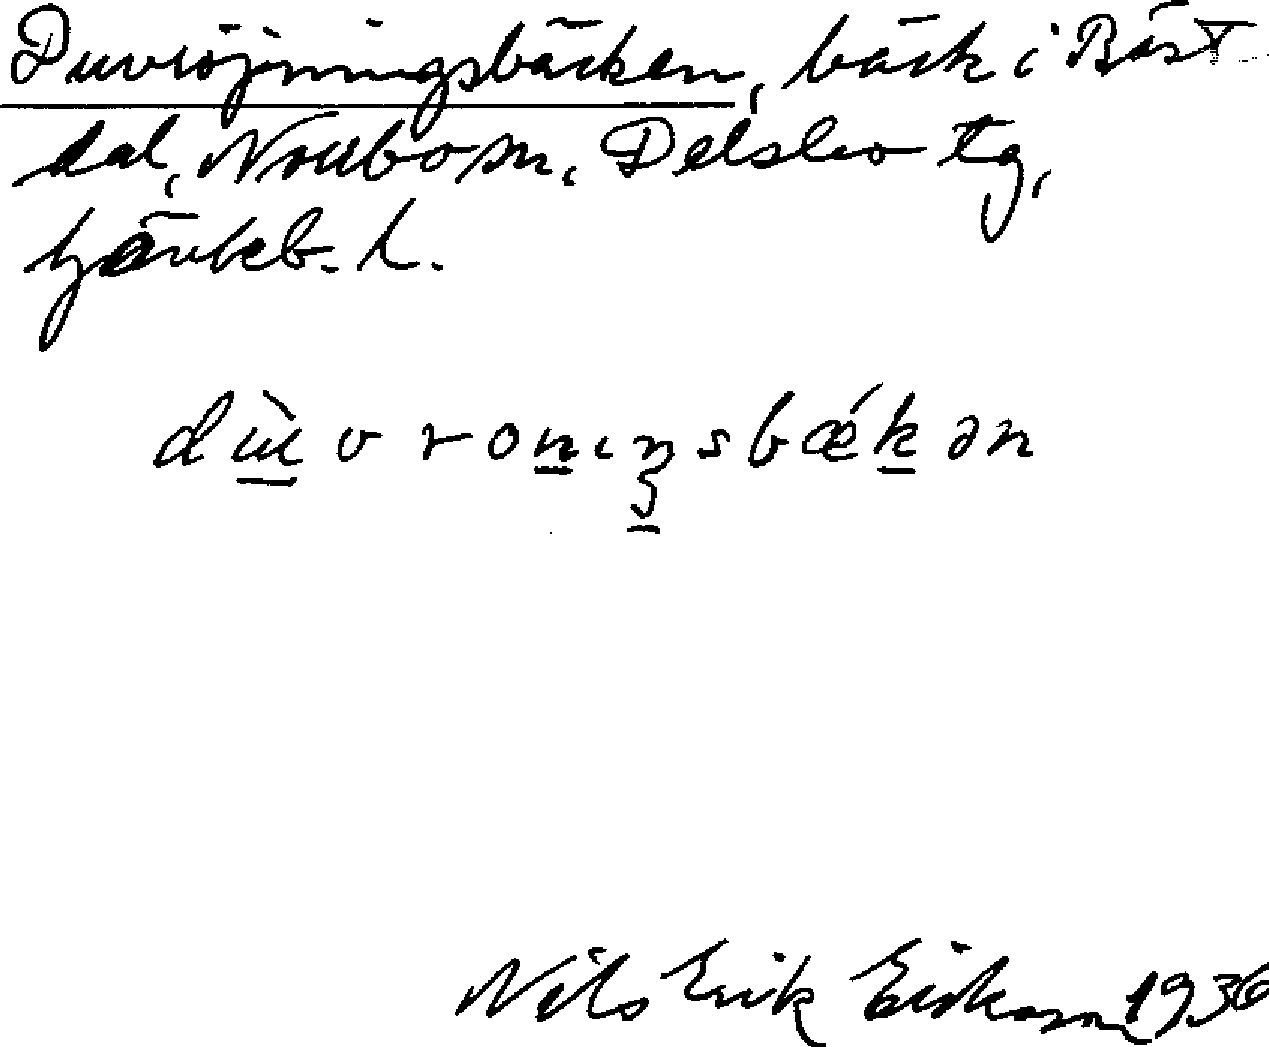 Duvröjningsbäcken, bäck i Bäst
dal, Norrbo sn, Delsbo tg,
Gävleb. l.
dɯ̀vronıŋsbǽkən
Nils Erik Erikson 1936